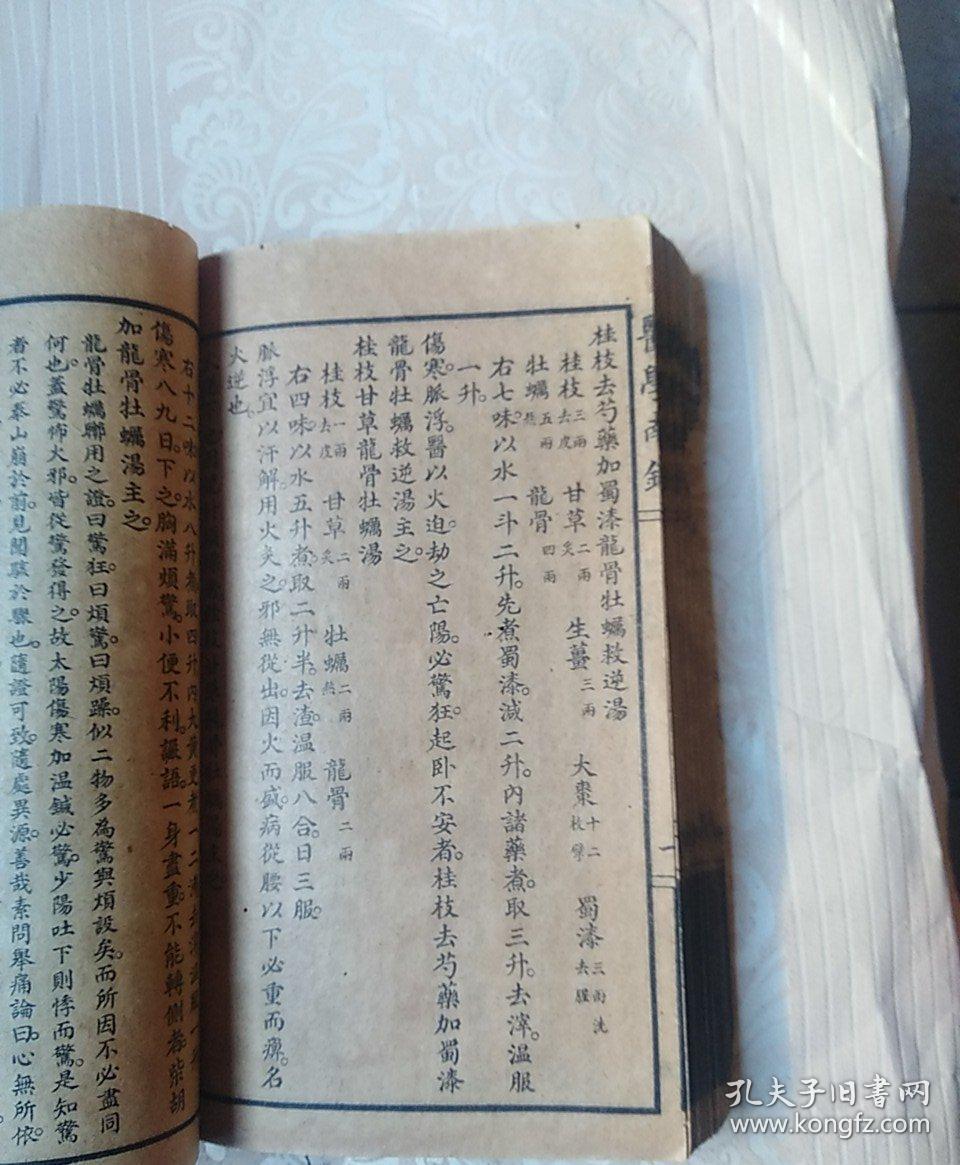 醫學南針
一
桂枝去芍藥加蜀漆龍骨牡蠣救逆湯
桂枝三兩去皮 甘草二兩炙 生薑三兩 大棗十二枚擘 蜀漆三兩洗去腥
牡蠣五兩熬 龍骨四兩
右七味。以水一斗二升。先煮蜀漆。減二升。內諸藥。煮取三升。去滓。温服
一升。
傷寒脈浮。醫以火迫劫之亡陽。必驚狂。起卧不安者。桂枝去芍藥加蜀漆
龍骨牡蠣救逆湯主之。
桂枝甘草龍骨牡蠣湯
桂枝一兩去皮 甘草二兩炙 牡蠣二兩熬 龍骨二兩
右四味。以水五升。煮取二升半。去渣。温服八合。日三服。
脈浮宜以汗解。用火灸之。邪無從出。因火而盛。病從腰以下必重而痹。名
火逆也。
右十二味以水八升煮取四升內大黃更煮一二沸去滓温服一升
傷寒八九日。下之。胸滿煩驚。小便不利。讝語。一身盡重。不能轉側者。柴胡
加龍骨牡蠣湯主之。
龍骨牡蠣聯用之證。曰驚狂。曰煩驚。曰煩躁。似二物多為驚與煩設矣。而所因不必盡同
何也。蓋驚怖火邪。皆從驚發得之。故太陽傷寒加温鍼必驚。少陽吐下則悸而驚。是知驚
者不必泰山崩於前。見聞駭於驟也。隨證可致。隨處異源。善哉素問舉痛論曰。心無所依
孔夫子旧书网
www.kongfz.com